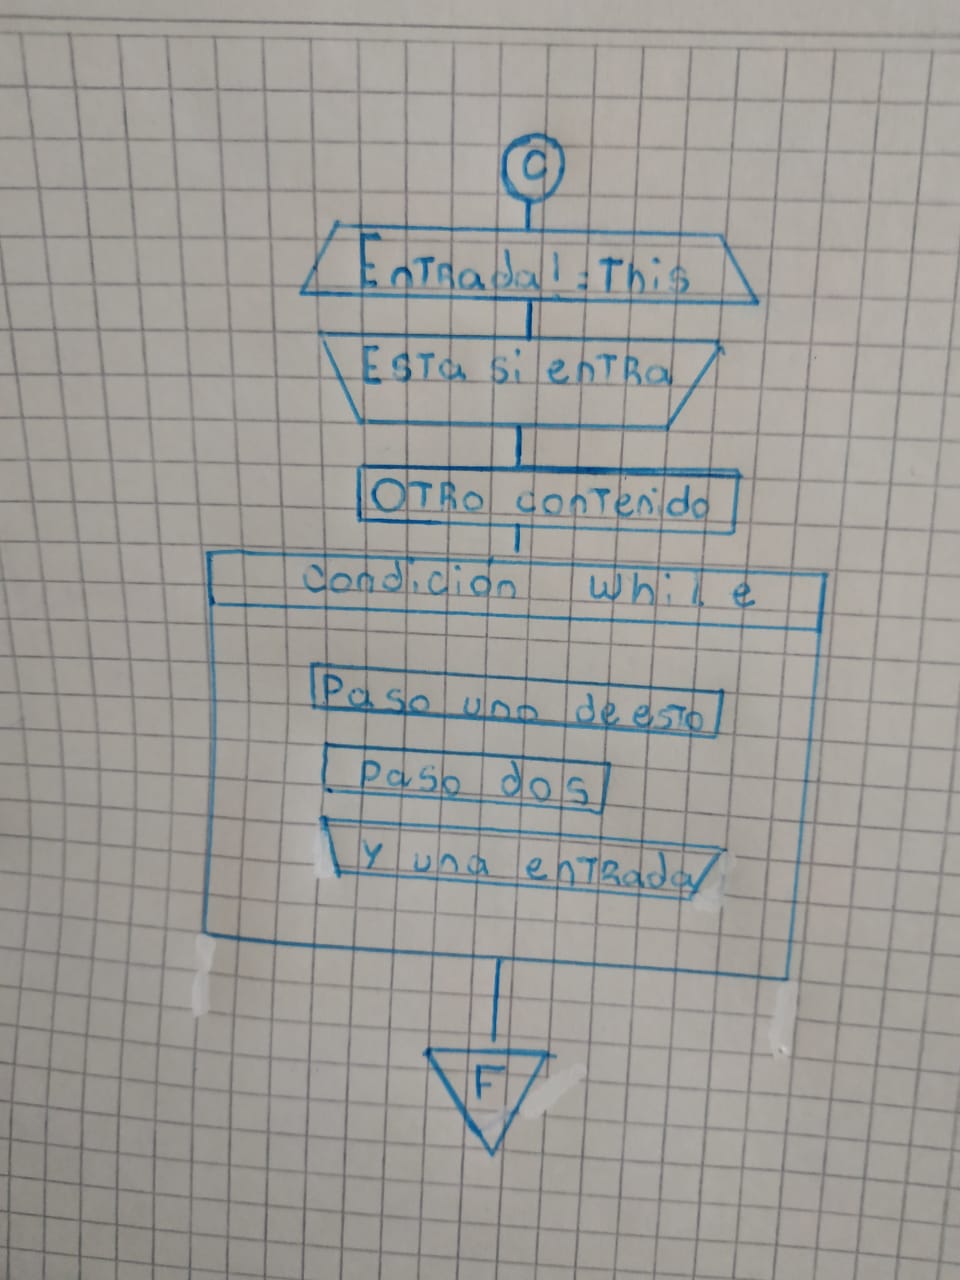 C
Entrada!=This
Esta si entra
Otro contenido
Condicion while
Paso uno de esto
paso dos
y una entrada
F